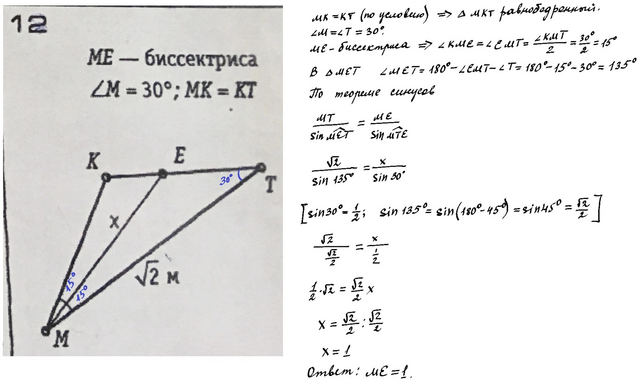 12
ME — биссектриса
∠M = 30°; MK = KT
K
E
T
30°
x
√2 м
15°
15°
M
MK = KT (по условию) ⇒ Δ MKT равнобедренный.
∠M = ∠T = 30°.
ME - биссектриса ⇒ ∠KME = ∠EMT = ∠KMT/2 = 30°/2 = 15°
В Δ MET ∠MET = 180° - ∠EMT - ∠T = 180° - 15° - 30° = 135°
По теореме синусов
MT/sin MET = ME/sin MTE
√2/sin 135° = x/sin 30°
[sin 30° = 1/2; sin 135° = sin(180° - 45°) = sin 45° = √2/2]
√2/(√2/2) = x/(1/2)
1/2 · √2 = √2/2 x
x = √2/2 : √2/2
x = 1
Ответ: ME = 1.